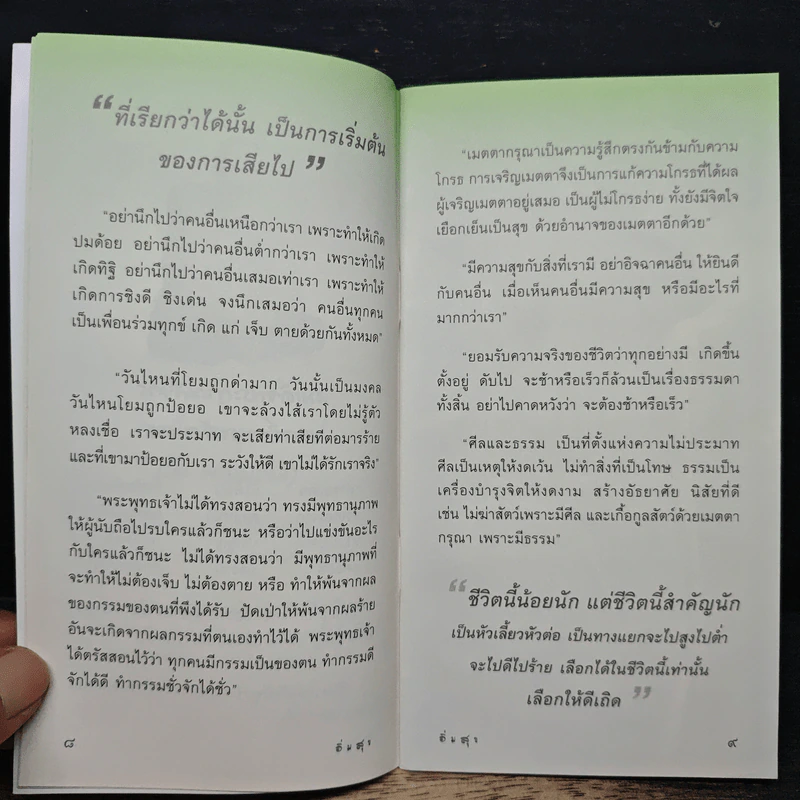 “ที่เรียกว่าได้นั้น เป็นการเริ่มต้น
ของการเสียไป”
“อย่านึกไปว่าคนอื่นเหนือกว่าเรา เพราะทำให้เกิด
ปมด้อย อย่านึกไปว่าคนอื่นต่ำกว่าเรา เพราะทำให้
เกิดทิฐิ อย่านึกไปว่าคนอื่นเสมอเท่าเรา เพราะทำให้
เกิดการชิงดี ชิงเด่น จงนึกเสมอว่า คนอื่นทุกคน
เป็นเพื่อนร่วมทุกข์ เกิด แก่ เจ็บ ตายด้วยกันทั้งหมด”
“วันไหนที่โยมถูกด่ามาก วันนั้นเป็นมงคล
วันไหนโยมถูกป้อยอ เขาจะล้วงไส้เราโดยไม่รู้ตัว
หลงเชื่อ เราจะประมาท จะเสียท่าเสียทีต่อมารร้าย
และที่เขามาป้อยอกับเรา ระวังให้ดี เขาไม่ได้รักเราจริง”
“พระพุทธเจ้าไม่ได้ทรงสอนว่า ทรงมีพุทธานุภาพ
ให้ผู้นับถือไปรบใครแล้วก็ชนะ หรือว่าไปแข่งขันอะไร
กับใครแล้วก็ชนะ ไม่ได้ทรงสอนว่า มีพุทธานุภาพที่
จะทำให้ไม่ต้องเจ็บ ไม่ต้องตาย หรือ ทำให้พ้นจากผล
ของกรรมของตนที่พึงได้รับ ปัดเป่าให้พ้นจากผลร้าย
อันจะเกิดจากผลกรรมที่ตนเองทำไว้ได้ พระพุทธเจ้า
ได้ตรัสสอนไว้ว่า ทุกคนมีกรรมเป็นของตน ทำกรรมดี
จักได้ดี ทำกรรมชั่วจักได้ชั่ว”
๘
อิ่มสุข
“เมตตากรุณาเป็นความรู้สึกตรงกันข้ามกับความ
โกรธ การเจริญเมตตาจึงเป็นการแก้ความโกรธที่ได้ผล
ผู้เจริญเมตตาอยู่เสมอ เป็นผู้ไม่โกรธง่าย ทั้งยังมีจิตใจ
เยือกเย็นเป็นสุข ด้วยอำนาจของเมตตาอีกด้วย”
“มีความสุขกับสิ่งที่เรามี อย่าอิจฉาคนอื่น ให้ยินดี
กับคนอื่น เมื่อเห็นคนอื่นมีความสุข หรือมีอะไรที่
มากกว่าเรา”
“ยอมรับความจริงของชีวิตว่าทุกอย่างมี เกิดขึ้น
ตั้งอยู่ ดับไป จะช้าหรือเร็วก็ล้วนเป็นเรื่องธรรมดา
ทั้งสิ้น อย่าไปคาดหวังว่า จะต้องช้าหรือเร็ว”
“ศีลและธรรม เป็นที่ตั้งแห่งความไม่ประมาท
ศีลเป็นเหตุให้งดเว้น ไม่ทำสิ่งที่เป็นโทษ ธรรมเป็น
เครื่องบำรุงจิตให้งดงาม สร้างอัธยาศัย นิสัยที่ดี
เช่น ไม่ฆ่าสัตว์เพราะมีศีล และเกื้อกูลสัตว์ด้วยเมตตา
กรุณา เพราะมีธรรม”
“ชีวิตนี้น้อยนัก แต่ชีวิตนี้สำคัญนัก
เป็นหัวเลี้ยวหัวต่อ เป็นทางแยกจะไปสูงไปต่ำ
จะไปดีไปร้าย เลือกได้ในชีวิตนี้เท่านั้น
เลือกให้ดีเถิด”
อิ่มสุข
๙